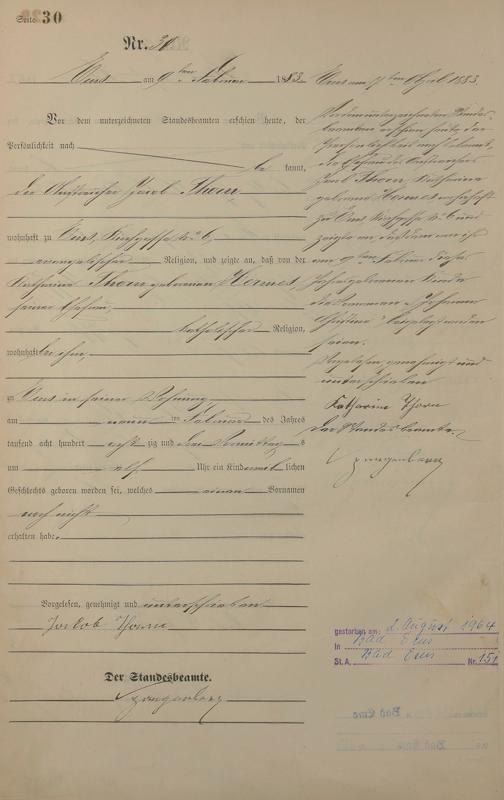 Seite 30
Nr. 30
Ems am 9ten Februar 1883.
Vor dem unterzeichneten Standesbeamten erschien heute, der
Persönlichkeit nach
be kannt,
der Anstreicher Jacob Thorn
wohnhaft zu Ems, Kirchgasse No 6,
evangelischer Religion, und zeigte an, daß von der
Katharina Thorn geborenen Hermes,
seiner Ehefrau,
katholischer Religion,
wohnhaft bei ihm,
zu Ems in seiner Wohnung,
am neunten ten Februar des Jahres
tausend acht hundert acht zig und drei Vormittags
um elf Uhr ein Kind weib lichen
Geschlechts geboren worden sei, welches einen Vornamen
noch nicht
erhalten habe.
Vorgelesen, genehmigt und unterschrieben
Jackob Thorn
Der Standesbeamte.
Spangenberg
Ems am 7ten April 1883.
Vor dem unterzeichneten Standes-
beamten erschien heute, der
Persönlichkeit nach bekannt,
die Ehefrau des Anstreichers
Jacob Thorn, Katharina
geborene Hermes, wohnhaft
zu Ems Kirchgasse No 6 und
zeigte an, daß dem
am 9ten Februar dieses
Jahres geborenen Kinde
die Vornamen Johanna
Christine beigelegt worden
seien.
Vorgelesen, genehmigt und
unterschrieben
Katharine Thorn
Der Standesbeamte.
Spangenberg
gestorben am: 2. August 1964
in Bad Ems
St. A. Bad Ems Nr. 151